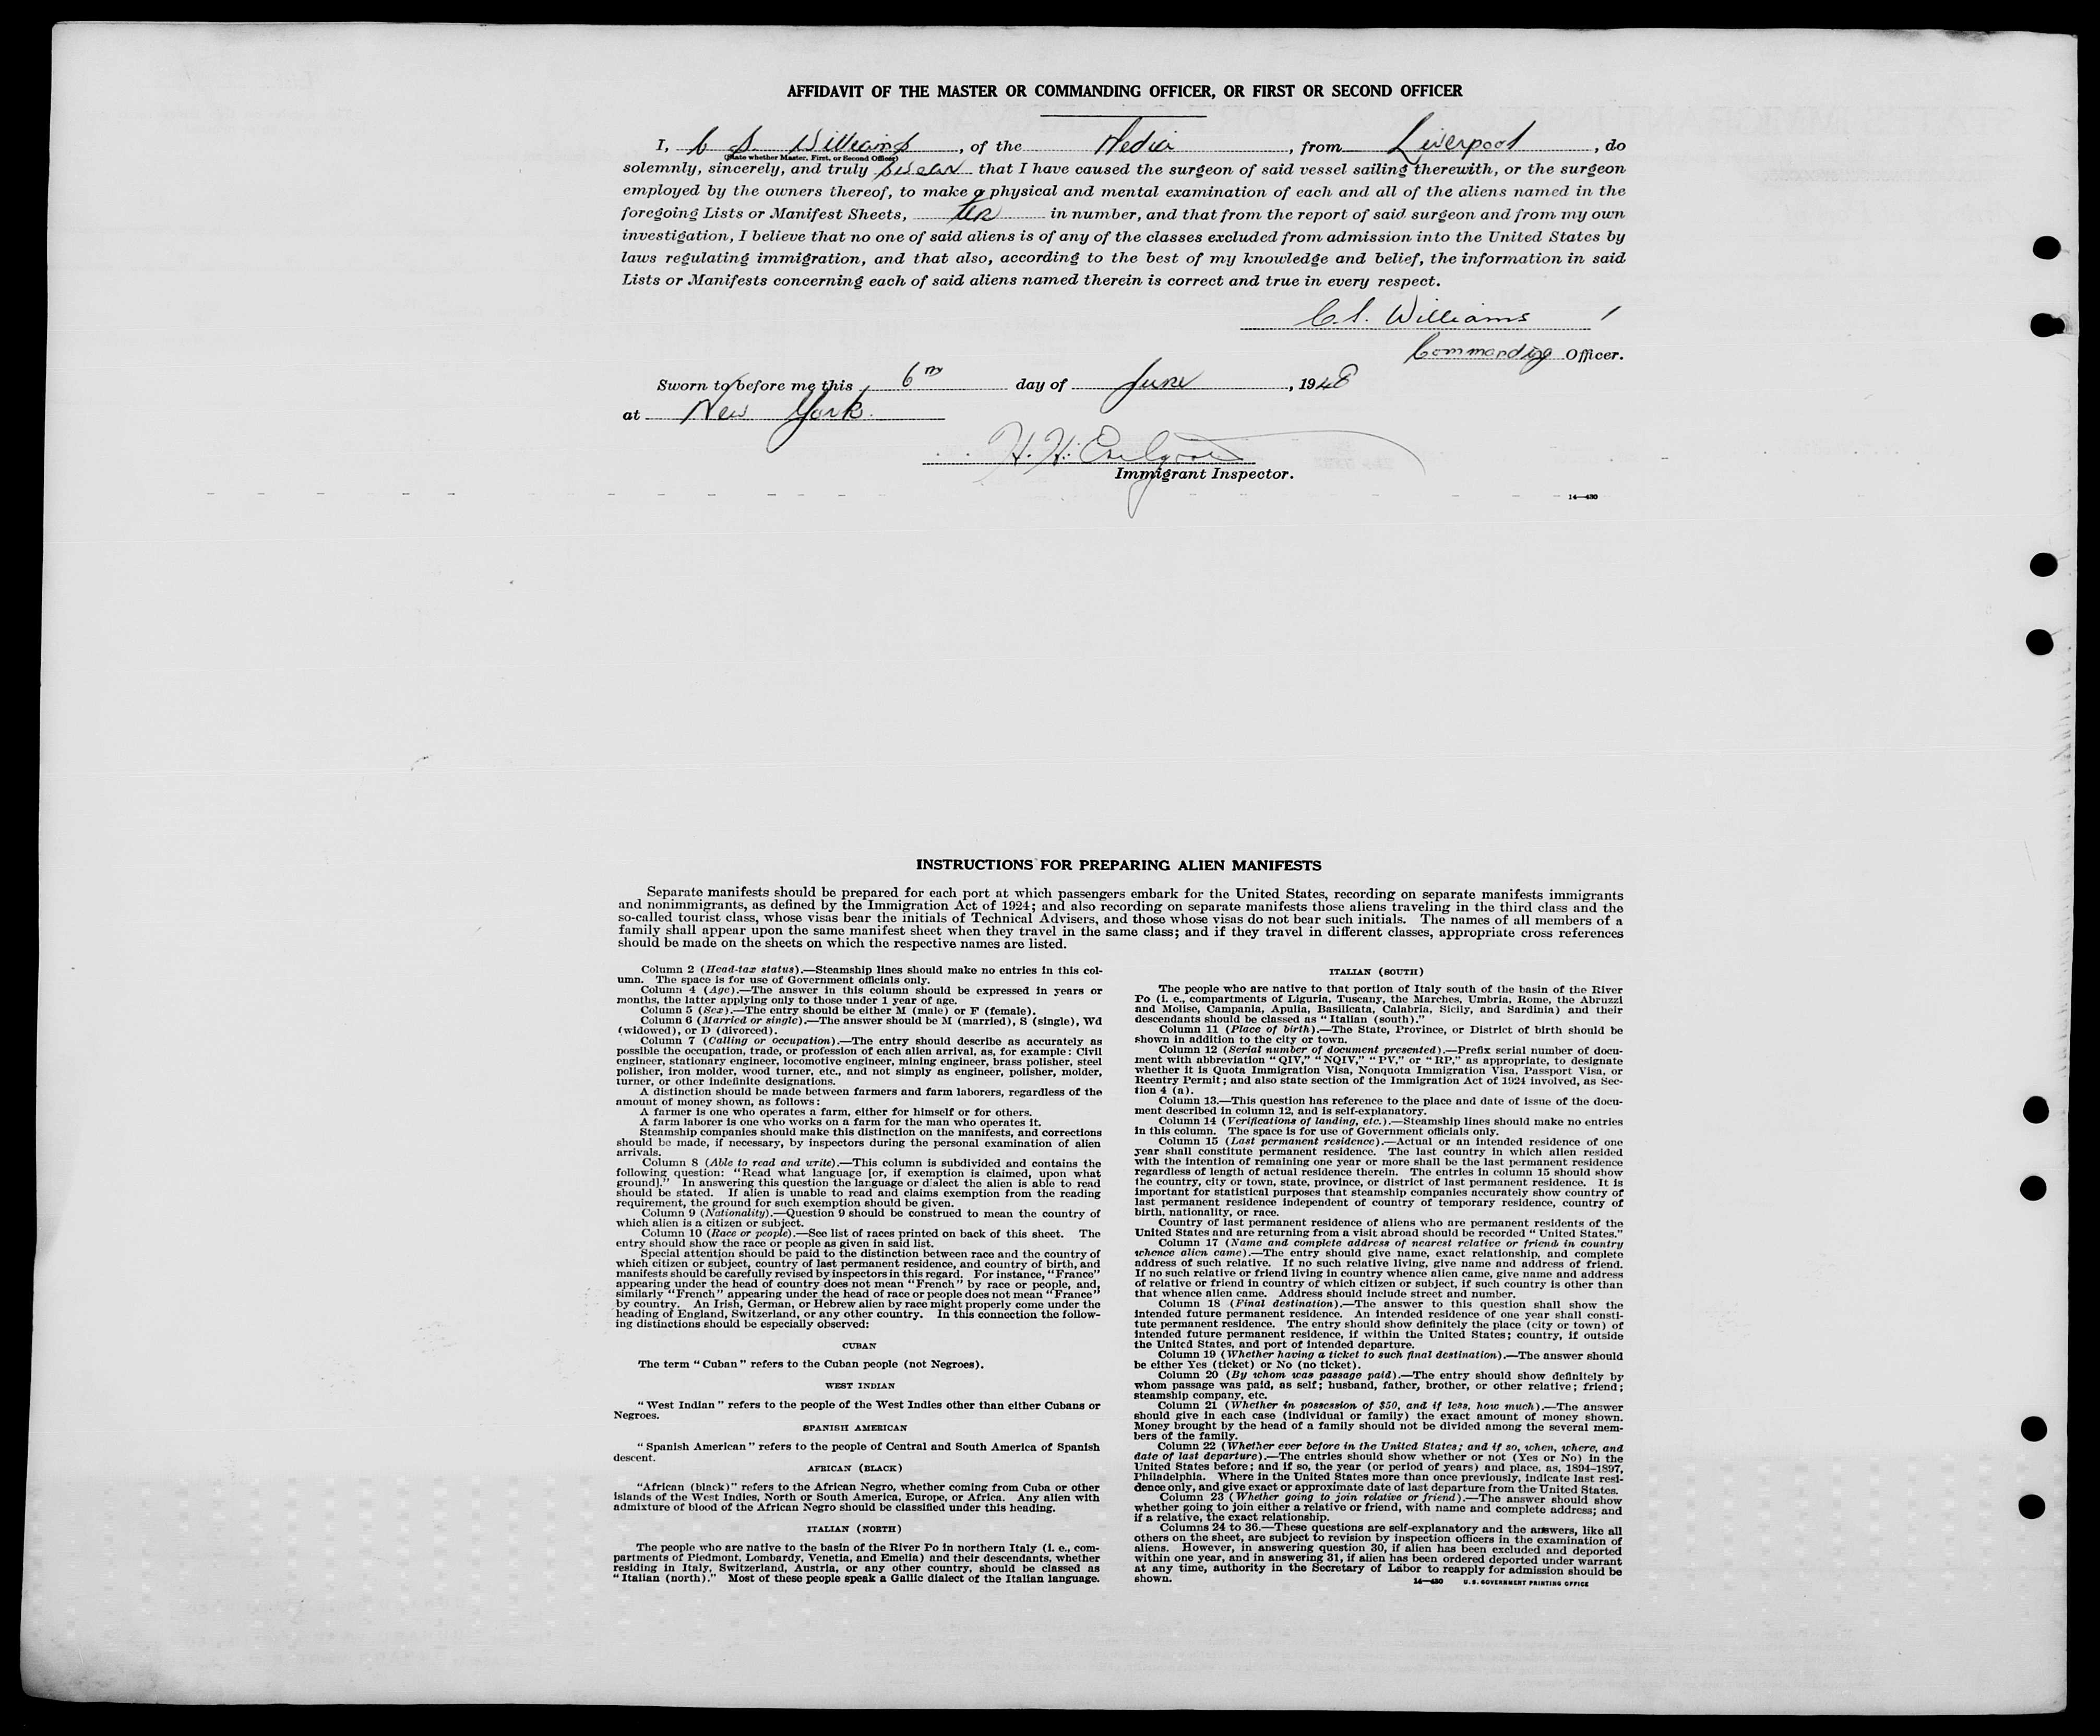 AFFIDAVIT OF THE MASTER OR COMMANDING OFFICER, OR FIRST OR SECOND OFFICER
I, C S. Williams, of the Media, from Liverpool, do
(State whether Master, First, or Second Officer)
solemnly, sincerely, and truly swear that I have caused the surgeon of said vessel sailing therewith, or the surgeon
employed by the owners thereof, to make a physical and mental examination of each and all of the aliens named in the
foregoing Lists or Manifest Sheets, ten in number, and that from the report of said surgeon and from my own
investigation, I believe that no one of said aliens is of any of the classes excluded from admission into the United States by
laws regulating immigration, and that also, according to the best of my knowledge and belief, the information in said
Lists or Manifests concerning each of said aliens named therein is correct and true in every respect.
C.S. Williams
Commanding Officer.
Sworn to before me this 6th day of June, 1948
at New York.
H. H.
Immigrant Inspector.
14—430
INSTRUCTIONS FOR PREPARING ALIEN MANIFESTS
Separate manifests should be prepared for each port at which passengers embark for the United States, recording on separate manifests immigrants
and nonimmigrants, as defined by the Immigration Act of 1924; and also recording on separate manifests those aliens traveling in the third class and the
so-called tourist class, whose visas bear the initials of Technical Advisers, and those whose visas do not bear such initials. The names of all members of a
family shall appear upon the same manifest sheet when they travel in the same class; and if they travel in different classes, appropriate cross references
should be made on the sheets on which the respective names are listed.
Column 2 (Head-tax status).—Steamship lines should make no entries in this col-
umn. The space is for use of Government officials only.
Column 4 (Age).—The answer in this column should be expressed in years or
months, the latter applying only to those under 1 year of age.
Column 5 (Sex).—The entry should be either M (male) or F (female).
Column 6 (Married or single).—The answer should be M (married), S (single), Wd
(widowed), or D (divorced).
Column 7 (Calling or occupation).—The entry should describe as accurately as
possible the occupation, trade, or profession of each alien arrival, as, for example: Civil
engineer, stationary engineer, locomotive engineer, mining engineer, brass polisher, steel
polisher, iron molder, wood turner, etc., and not simply as engineer, polisher, molder,
turner, or other indefinite designations.
A distinction should be made between farmers and farm laborers, regardless of the
amount of money shown, as follows:
A farmer is one who operates a farm, either for himself or for others.
A farm laborer is one who works on a farm for the man who operates it.
Steamship companies should make this distinction on the manifests, and corrections
should be made, if necessary, by inspectors during the personal examination of alien
arrivals.
Column 8 (Able to read and write).—This column is subdivided and contains the
following question: "Read what language [or, if exemption is claimed, upon what
ground]." In answering this question the language or dialect the alien is able to read
should be stated. If alien is unable to read and claims exemption from the reading
requirement, the ground for such exemption should be given.
Column 9 (Nationality).—Question 9 should be construed to mean the country of
which alien is a citizen or subject.
Column 10 (Race or people).—See list of races printed on back of this sheet. The
entry should show the race or people as given in said list.
Special attention should be paid to the distinction between race and the country of
which citizen or subject, country of last permanent residence, and country of birth, and
manifests should be carefully revised by inspectors in this regard. For instance, "France"
appearing under the head of country does not mean "French" by race or people, and,
similarly "French" appearing under the head of race or people does not mean "France"
by country. An Irish, German, or Hebrew alien by race might properly come under the
heading of England, Switzerland, or any other country. In this connection the follow-
ing distinctions should be especially observed:
CUBAN
The term "Cuban" refers to the Cuban people (not Negroes).
WEST INDIAN
"West Indian" refers to the people of the West Indies other than either Cubans or
Negroes.
SPANISH AMERICAN
"Spanish American" refers to the people of Central and South America of Spanish
descent.
AFRICAN (BLACK)
"African (black)" refers to the African Negro, whether coming from Cuba or other
islands of the West Indies, North or South America, Europe, or Africa. Any alien with
admixture of blood of the African Negro should be classified under this heading.
ITALIAN (NORTH)
The people who are native to the basin of the River Po in northern Italy (i. e., com-
partments of Piedmont, Lombardy, Venetia, and Emelia) and their descendants, whether
residing in Italy, Switzerland, Austria, or any other country, should be classed as
"Italian (north)." Most of these people speak a Gallic dialect of the Italian language.
ITALIAN (SOUTH)
The people who are native to that portion of Italy south of the basin of the River
Po (i. e., compartments of Liguria, Tuscany, the Marches, Umbria, Rome, the Abruzzi
and Molise, Campania, Apulia, Basilicata, Calabria, Sicily, and Sardinia) and their
descendants should be classed as "Italian (south)."
Column 11 (Place of birth).—The State, Province, or District of birth should be
shown in addition to the city or town.
Column 12 (Serial number of document presented).—Prefix serial number of docu-
ment with abbreviation "QIV," "NQIV," "PV," or "RP," as appropriate, to designate
whether it is Quota Immigration Visa, Nonquota Immigration Visa, Passport Visa, or
Reentry Permit; and also state section of the Immigration Act of 1924 involved, as Sec-
tion 4 (a).
Column 13.—This question has reference to the place and date of issue of the docu-
ment described in column 12, and is self-explanatory.
Column 14 (Verifications of landing, etc.).—Steamship lines should make no entries
in this column. The space is for use of Government officials only.
Column 15 (Last permanent residence).—Actual or an intended residence of one
year shall constitute permanent residence. The last country in which alien resided
with the intention of remaining one year or more shall be the last permanent residence
regardless of length of actual residence therein. The entries in column 15 should show
the country, city or town, state, province, or district of last permanent residence. It is
important for statistical purposes that steamship companies accurately show country of
last permanent residence independent of country of temporary residence, country of
birth, nationality, or race.
Country of last permanent residence of aliens who are permanent residents of the
United States and are returning from a visit abroad should be recorded "United States."
Column 17 (Name and complete address of nearest relative or friend in country
whence alien came).—The entry should give name, exact relationship, and complete
address of such relative. If no such relative living, give name and address of friend.
If no such relative or friend living in country whence alien came, give name and address
of relative or friend in country of which citizen or subject, if such country is other than
that whence alien came. Address should include street and number.
Column 18 (Final destination).—The answer to this question shall show the
intended future permanent residence. An intended residence of one year shall consti-
tute permanent residence. The entry should show definitely the place (city or town) of
intended future permanent residence, if within the United States; country, if outside
the United States, and port of intended departure.
Column 19 (Whether having a ticket to such final destination).—The answer should
be either Yes (ticket) or No (no ticket).
Column 20 (By whom was passage paid).—The entry should show definitely by
whom passage was paid, as self; husband, father, brother, or other relative; friend;
steamship company, etc.
Column 21 (Whether in possession of $50, and if less, how much).—The answer
should give in each case (individual or family) the exact amount of money shown.
Money brought by the head of a family should not be divided among the several mem-
bers of the family.
Column 22 (Whether ever before in the United States; and if so, when, where, and
date of last departure).—The entries should show whether or not (Yes or No) in the
United States before; and if so, the year (or period of years) and place, as, 1894–1897,
Philadelphia. Where in the United States more than once previously, indicate last resi-
dence only, and give exact or approximate date of last departure from the United States.
Column 23 (Whether going to join relative or friend).—The answer should show
whether going to join either a relative or friend, with name and complete address; and
if a relative, the exact relationship.
Columns 24 to 36.—These questions are self-explanatory and the answers, like all
others on the sheet, are subject to revision by inspection officers in the examination of
aliens. However, in answering question 30, if alien has been excluded and deported
within one year, and in answering 31, if alien has been ordered deported under warrant
at any time, authority in the Secretary of Labor to reapply for admission should be
shown.
14—430 U. S. GOVERNMENT PRINTING OFFICE